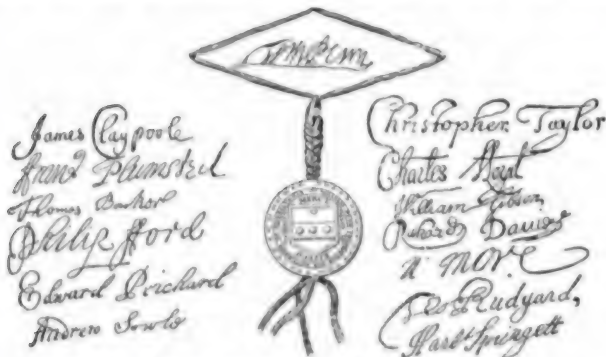 Wm Penn
James Claypoole
Franc Plumsted
Thomas Barker
Philip fford
Edward Prichard
Andrew Sowle
Christopher Taylor
Charles Lloyd
William Gibson
Richard Davies
N More
Tho Rudyard,
Harbt Springett